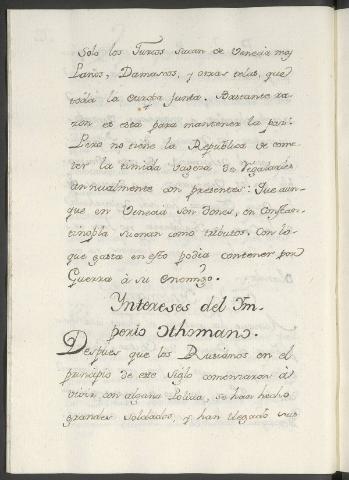 Solo los Turcos sacan de Venecia mas
Paños, Damascos, y otras telas, que
toda la europa junta. Bastante ra-
zon es esta para mantener la paz.
Pero no tiene la Republica de come-
ter la timida vageza de Regalarles
annualmente con presentes: Que aun-
que en Venecia son dones, en Constan-
tinopla suenan como tributos. Con lo
que gasta en esto podia contener por
Guerra à su enemigo.
Intereses del Im-
perio Othomano.
Despues que los Rusianos en el
principio de este siglo comenzaron à
vivir con alguna Policia, se han hecho
grandes soldados, y han llegado sus